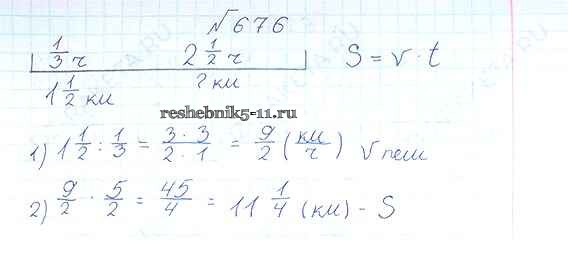 √676
1/3 ч 2 1/2 ч S = v · t
1 1/2 км ? км
reshebnik5-11.ru
1) 1 1/2 : 1/3 = 3·3/2·1 = 9/2 (км/ч) V пеш
2) 9/2 · 5/2 = 45/4 = 11 1/4 (км) - S